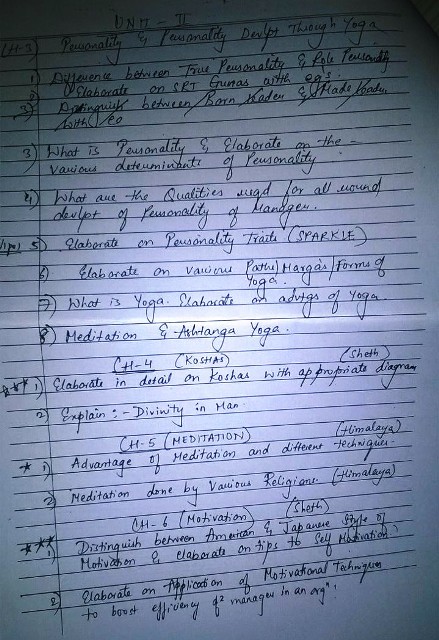 UNIT - II
CH-3 Personality & Personality Devlpt Through Yoga
1) Difference between True Personality & Role Personality
2) Elaborate on SRT Gunas with egs.
3) Distinguish between Born Leader & Made Leader
with eg
3) What is Personality & Elaborate on the -
various determinants of Personality
4) What are the Qualities reqd for all round
devlpt of Personality of Manager.
5) Elaborate on Personality Traits (SPARKLE)
6) Elaborate on various Paths/Margas/Forms of
Yoga.
7) What is Yoga. Elaborate on advtgs of Yoga.
8) Meditation & Ashtanga Yoga.
CH-4 (KOSHAS) (Sheth)
*** 1) Elaborate in detail on Koshas with appropriate diagram
2) Explain :- Divinity in Man.
CH-5 (MEDITATION) (Himalaya)
* 1) Advantage of Meditation and different techniques.
2) Meditation done by Various Religions. (Himalaya)
CH-6 (Motivation) (Sheth)
*** 1) Distinguish between American & Japanese Style of
Motivation & elaborate on tips to Self Motivation
2) Elaborate on Application of Motivational Techniques
to boost efficiency of manager in an orgn.